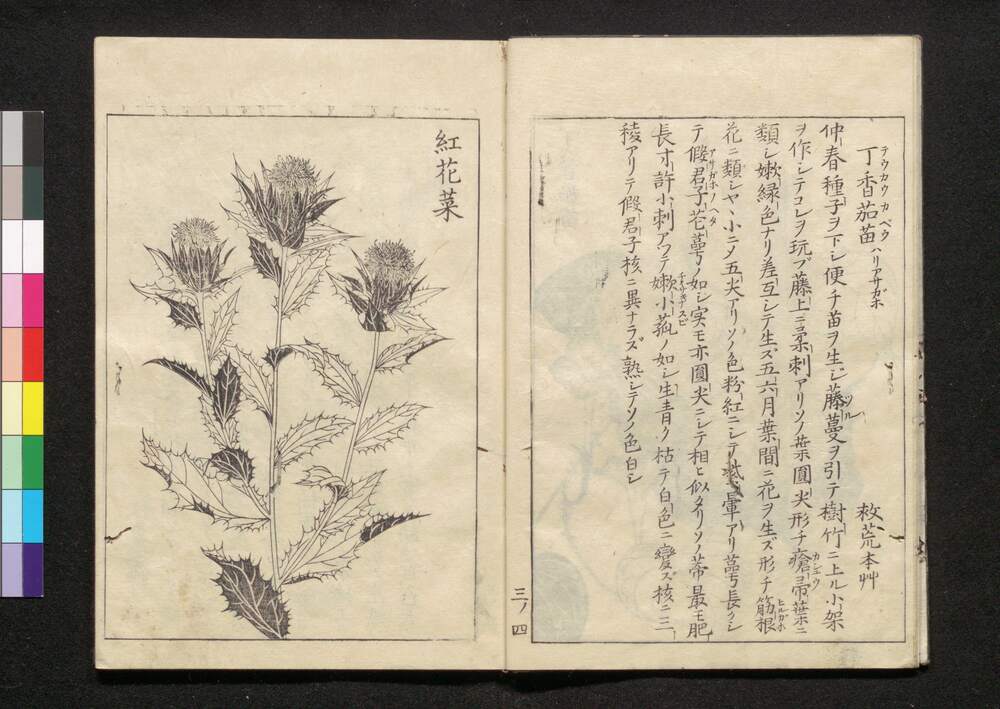 丁香茄苗 テウカウカベウ ハリアサガホ 救荒本艸
仲春種子ヲ下シ便チ苗ヲ生シ藤蔓ヲ引テ樹竹ニ上ル小架
ヲ作シテコレヲ玩ブ藤上ニ柔刺アリソノ葉圓尖形チ瘡帚葉ニ
類シ嫩緑色ナリ差互シテ生ズ五六月葉間ニ花ヲ生ズ形チ筋根
花ニ類シヤヽ小ニノ五尖アリソノ色粉紅ニシテ紫暈アリ萼長クシ
テ假君子花萼ノ如シ実モ亦圓尖ニシテ相ヒ似タリソノ蒂最モ肥
長寸許小刺アツテ嫩小茄ノ如シ生青ク枯テ白色ニ變ズ核ニ三
稜アリテ假君子核ニ異ナラズ熟シテソノ色白シ
三ノ四
紅花菜